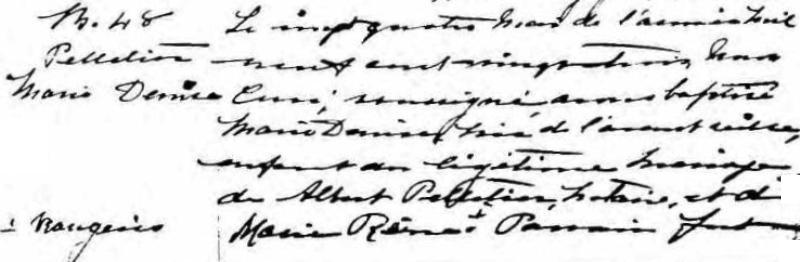 B. 48
Pelletier
Marie Denise
Le vingt quatre Mai de l'année mil
neuf cent vingt trois, Nous
Curé, soussigné avons baptisé
Marie Denise, née de l'avant veille,
enfant du légitime mariage
de Albert Pelletier, notaire, et de
Marie Réna ± Parrain fut
± Rougeau